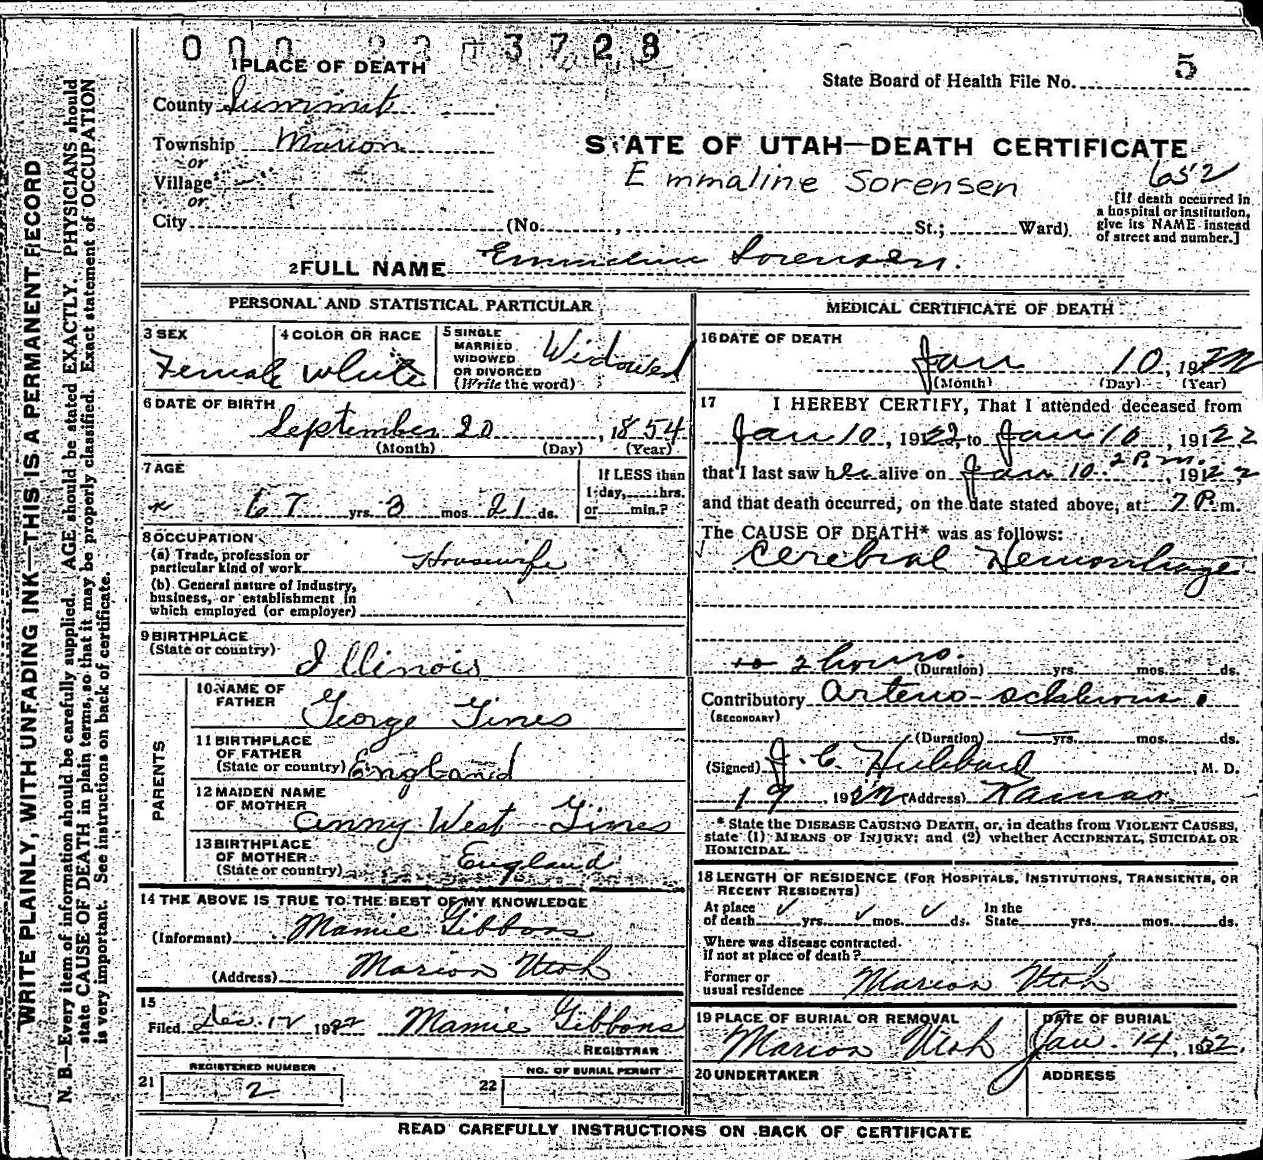 3 7 2 8
1 PLACE OF DEATH
State Board of Health File No. 5
County Summit
Township Marion
or
Village
or
City
STATE OF UTAH—DEATH CERTIFICATE
Emmaline Sorensen
652
(No. , St.; Ward)
[If death occurred in
a hospital or institution,
give its NAME instead
of street and number.]
2 FULL NAME Emmaline Sorensen.
PERSONAL AND STATISTICAL PARTICULAR
3 SEX
Female
4 COLOR OR RACE
White
5 SINGLE
MARRIED
WIDOWED
OR DIVORCED
(Write the word)
Widowed
6 DATE OF BIRTH
September 20, 1854
(Month) (Day) (Year)
7 AGE
67 yrs. 3 mos. 21 ds.
If LESS than
1 day, hrs.
or min.?
8 OCCUPATION
(a) Trade, profession or
particular kind of work Housewife
(b) General nature of industry,
business, or establishment in
which employed (or employer)
9 BIRTHPLACE
(State or country)
Illinois
PARENTS
10 NAME OF
FATHER
George Gines
11 BIRTHPLACE
OF FATHER
(State or country) England
12 MAIDEN NAME
OF MOTHER
Anny West Gines
13 BIRTHPLACE
OF MOTHER
(State or country) England
14 THE ABOVE IS TRUE TO THE BEST OF MY KNOWLEDGE
(Informant) Mamie Gibbons
(Address) Marion Utah
15
Filed 12 1922 Mamie Gibbons
REGISTRAR
21 REGISTERED NUMBER
2
22 NO. OF BURIAL PERMIT
MEDICAL CERTIFICATE OF DEATH
16 DATE OF DEATH
Jan 10, 19
(Month) (Day) (Year)
17 I HEREBY CERTIFY, That I attended deceased from
Jan 10, 1922, to Jan 10, 19122
that I last saw her alive on Jan 10 2 P.m., 19122
and that death occurred, on the date stated above, at 7 P.m.
The CAUSE OF DEATH* was as follows:
Cerebral Hemorrhage
2 hours. (Duration) yrs. mos. ds.
Contributory Arterio-sclerosis.
(SECONDARY)
(Duration) yrs. mos. ds.
(Signed) J. C. Hubbard, M. D.
19 (Address) Kamas
* State the DISEASE CAUSING DEATH, or, in deaths from VIOLENT CAUSES,
state (1) MEANS OF INJURY; and (2) whether ACCIDENTAL, SUICIDAL OR
HOMICIDAL.
18 LENGTH OF RESIDENCE (FOR HOSPITALS, INSTITUTIONS, TRANSIENTS, OR
RECENT RESIDENTS)
At place
of death yrs. mos. ds.
In the
State yrs. mos. ds.
Where was disease contracted
if not at place of death?
Former or
usual residence Marion Utah
19 PLACE OF BURIAL OR REMOVAL
Marion Utah
DATE OF BURIAL
Jan. 14, 1922.
20 UNDERTAKER
ADDRESS
READ CAREFULLY INSTRUCTIONS ON BACK OF CERTIFICATE
WRITE PLAINLY, WITH UNFADING INK—THIS IS A PERMANENT RECORD
N. B.—Every item of information should be carefully supplied. AGE should be stated EXACTLY. PHYSICIANS should
state CAUSE OF DEATH in plain terms, so that it may be properly classified. Exact statement of OCCUPATION
is very important. See instructions on back of certificate.